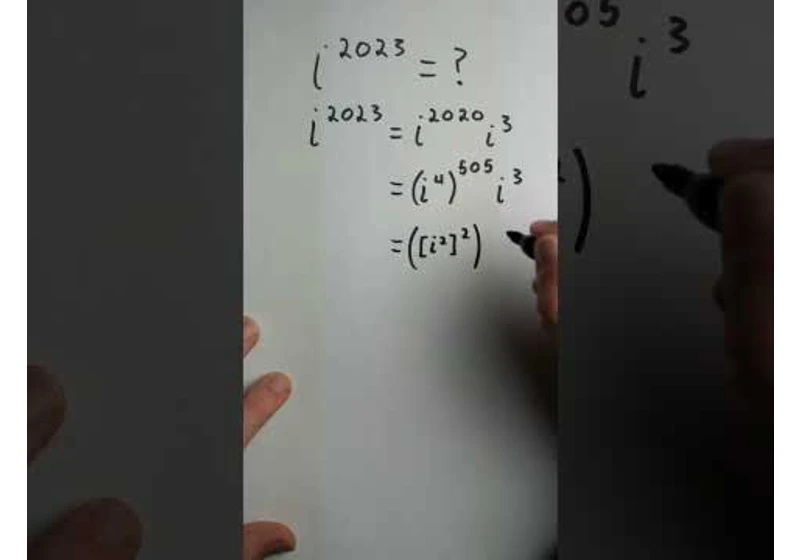 i^2023 = ?
i^2023 = i^2020 i^3
= (i^4)^505 i^3
= ([i²]²)
05 i^3
)